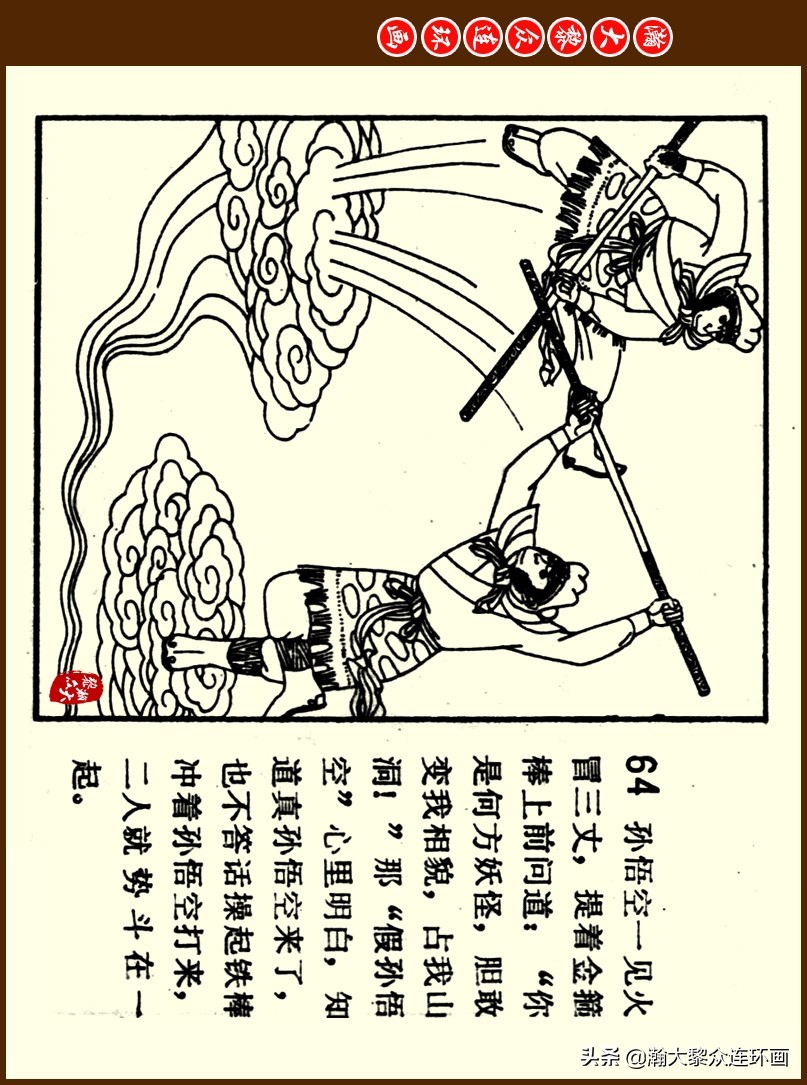 瀚大黎众连环画
64 孙悟空一见火
冒三丈，提着金箍
棒上前问道：“你
是何方妖怪，胆敢
变我相貌，占我山
洞！”那“假孙悟
空”心里明白，知
道真孙悟空来了，
也不答话操起铁棒
冲着孙悟空打来，
二人就势斗在一
起。
头条 @瀚大黎众连环画